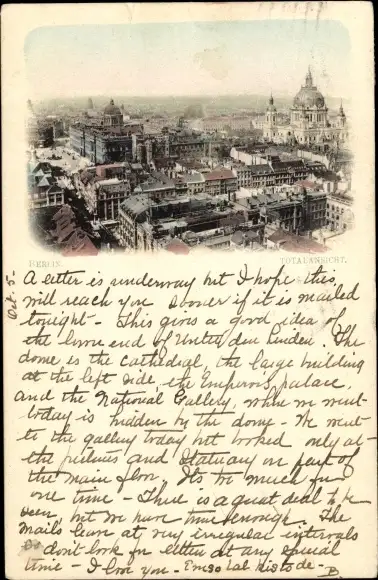 BERLIN.
TOTALANSICHT.
Oct. 5-
A letter is underway but I hope this
will reach you sooner if it is mailed
tonight - This gives a good idea of
the lower end of Unter den Linden. The
dome is the cathedral, the large building
at the left side, the Emperor's palace,
and the National Gallery, where we went
today is hidden by the dome - We went
to the gallery today but looked only at
the pictures and statuary on part of
the main floor. It's too much for
one time - There is a great deal to be
seen, but we have time enough. The
mails leave at very irregular intervals
so don't look for letters at any special
time - I love you -